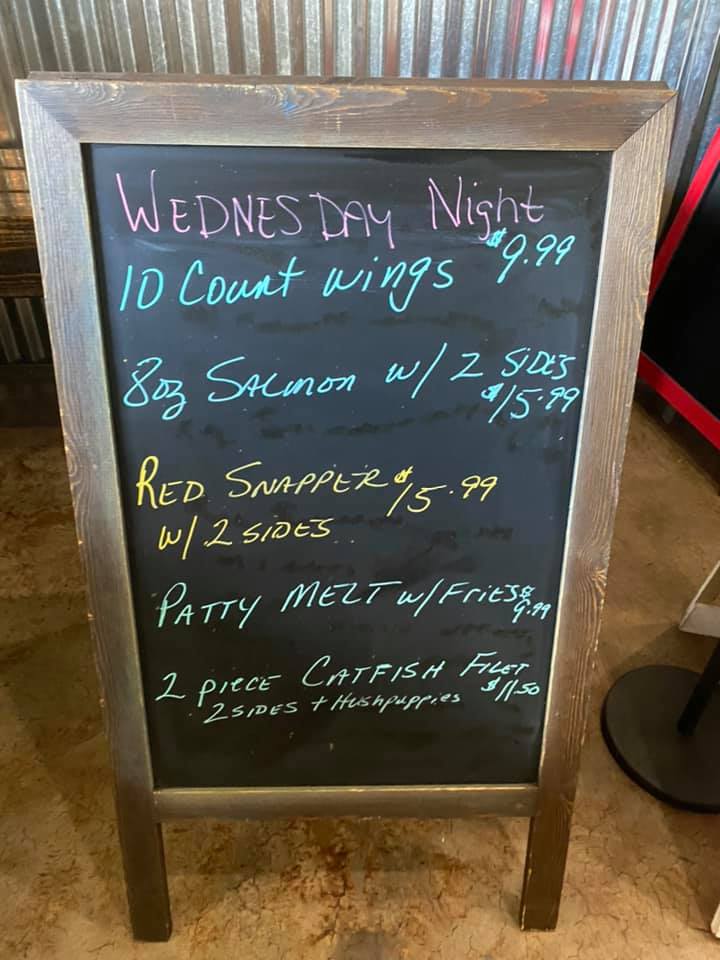 WEDNESDAY Night
10 Count wings $9.99
8oz SALMON w/ 2 SIDES
$15.99
RED SNAPPER $15.99
w/ 2 SIDES
PATTY MELT w/ FRIES $9.99
2 piece CATFISH FILET
2 SIDES + Hushpuppies $11.50